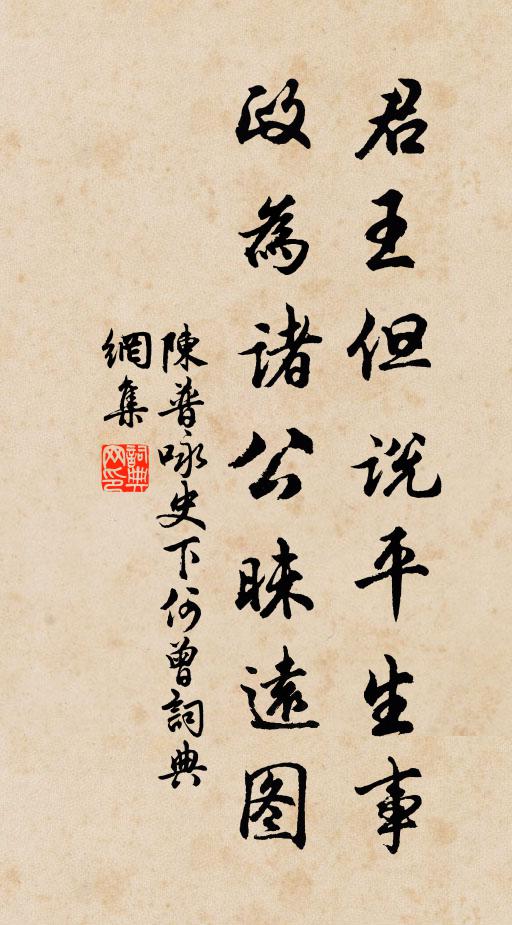 君王但说平生事
政為诸公昧遠图
陳普咏史下何曾詞典
網集
詞典網印